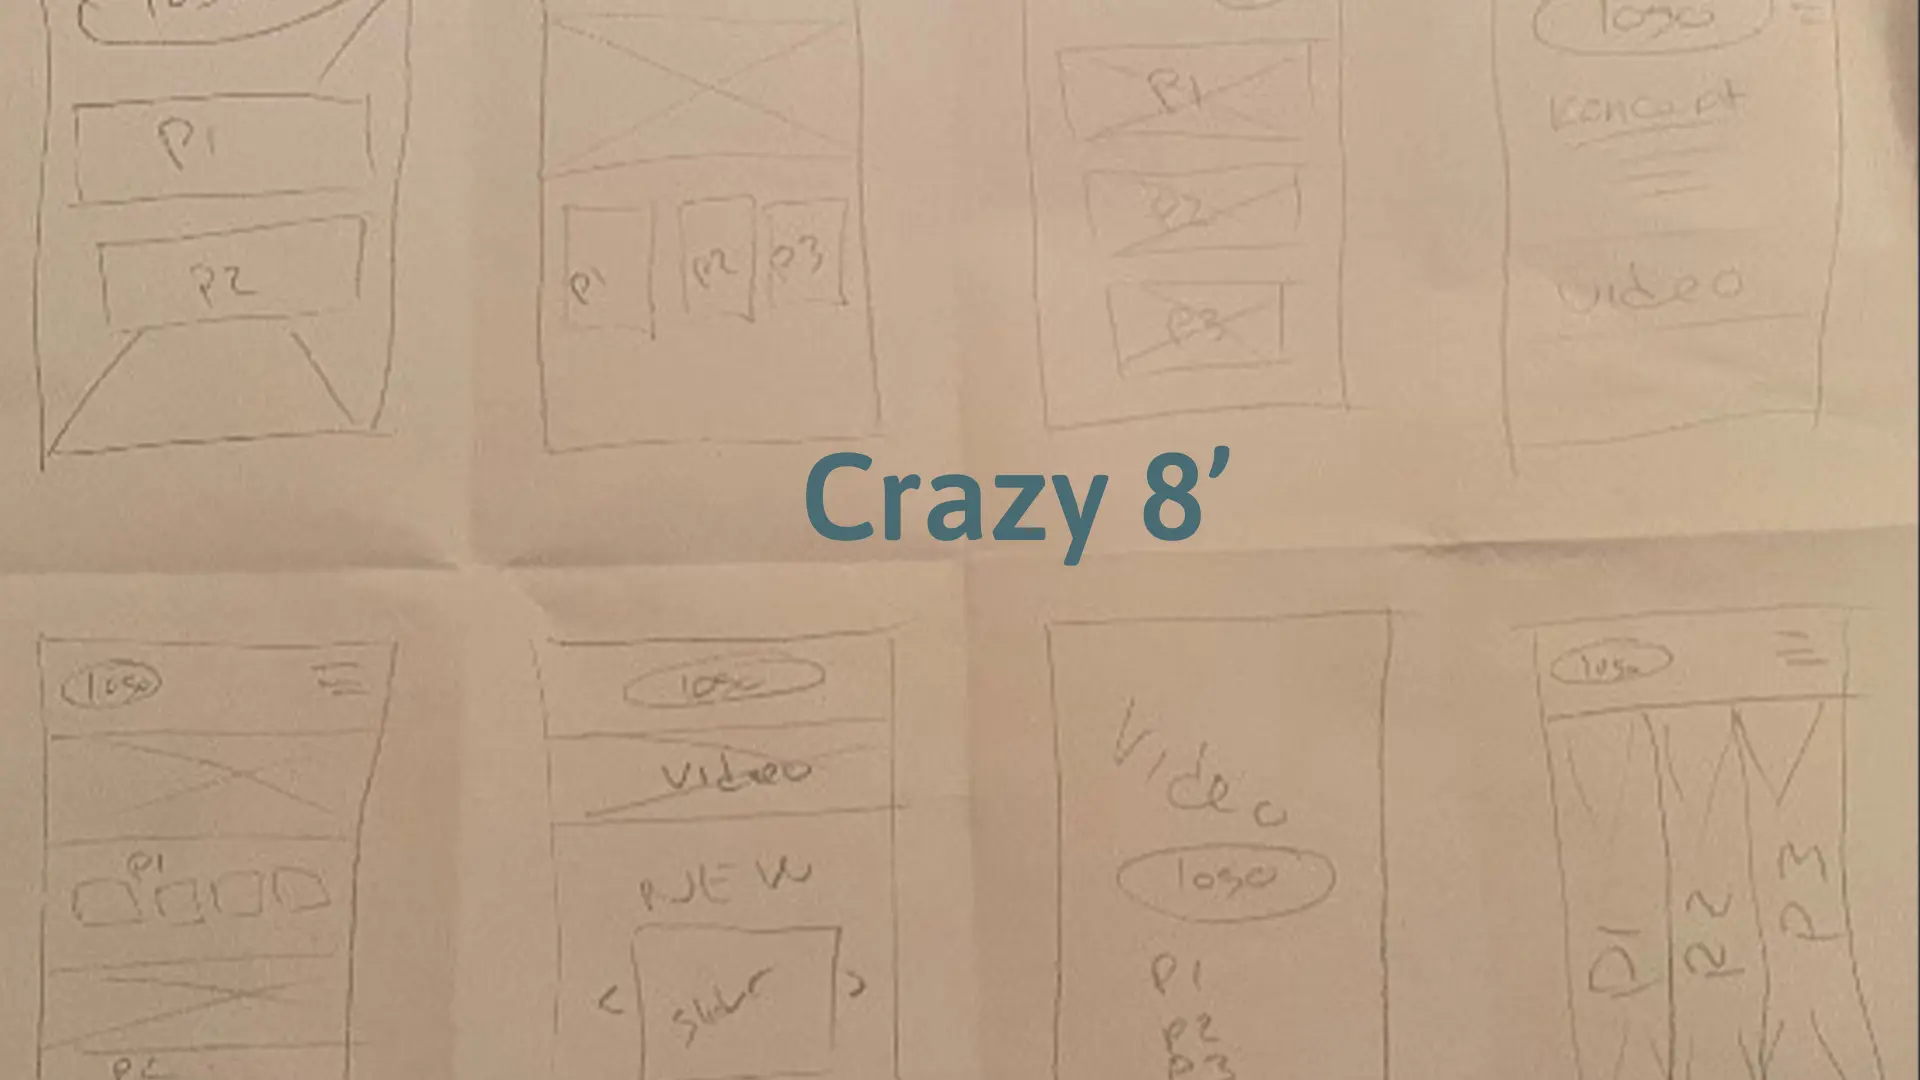 logo
P1
P2
P1
P2
P3
P1
P2
P3
logo
Koncept
video
Crazy 8’
logo
P1
logo
Video
NEW
<
Slider
>
Video
logo
P1
P2
P3
logo
P1
P2
P3